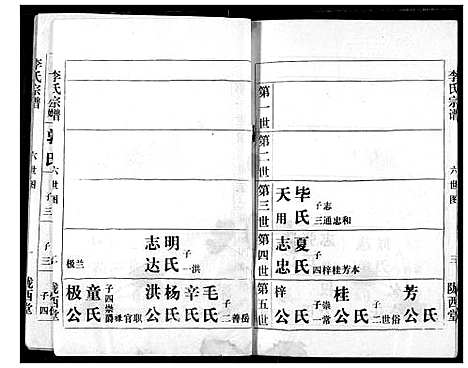 李氏宗谱
六世图
三
陇西堂
第一世
第二世
第三世
天用
毕氏
子三
志通忠和
第四世
志忠
夏氏
子四
梓桂芳本
志达
明氏
子一
洪
极兰
第五世
梓公
氏
子一
崇常
桂公
氏
子二
世俗
芳公
氏
洪公
杨氏
辛氏
毛氏
子二
善岳
极公
童氏
子四
崇爵
禄官职
李氏宗谱
六世图
陇西堂
李氏宗谱
六世图
陇西堂